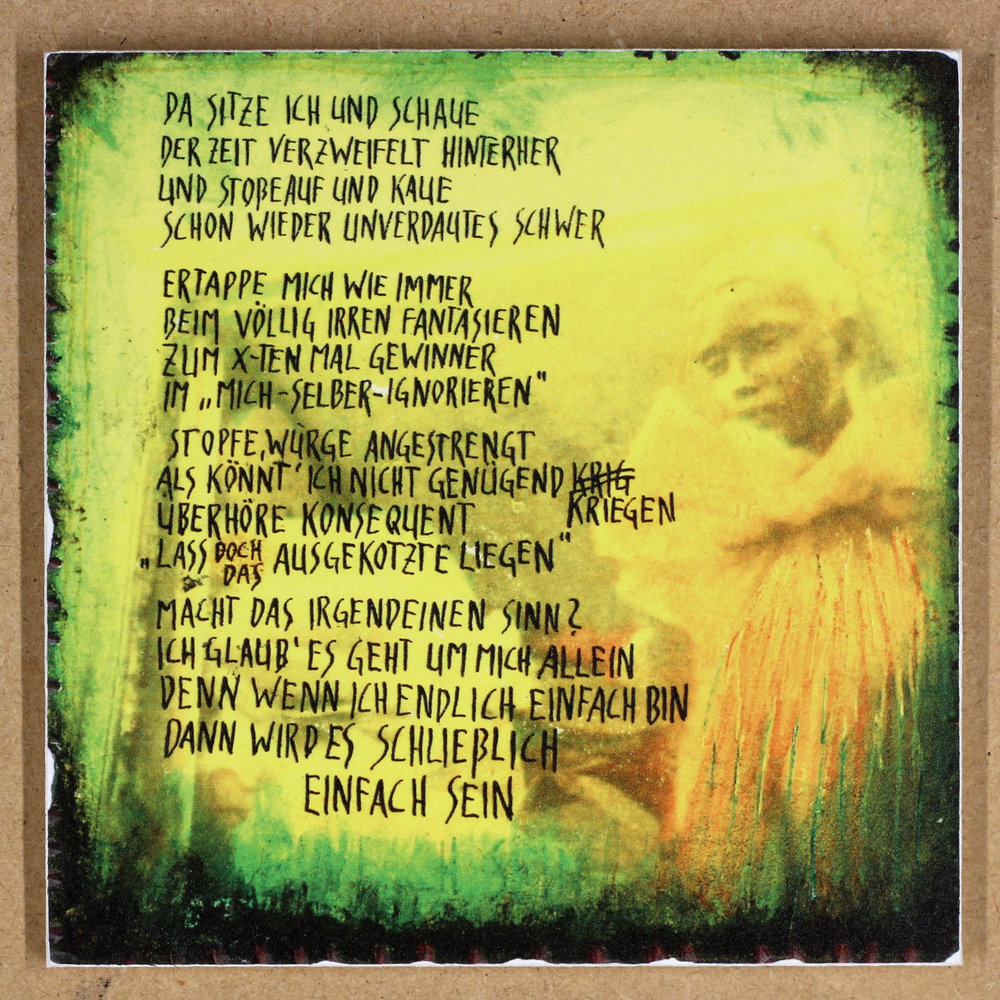 DA SITZE ICH UND SCHAUE
DER ZEIT VERZWEIFELT HINTERHER
UND STOßE AUF UND KAUE
SCHON WIEDER UNVERDAUTES SCHWER
ERTAPPE MICH WIE IMMER
BEIM VÖLLIG IRREN FANTASIEREN
ZUM X-TEN MAL GEWINNER
IM „MICH-SELBER-IGNORIEREN"
STOPFE, WÜRGE ANGESTRENGT
ALS KÖNNT' ICH NICHT GENÜGEND KRIG
KRIEGEN
ÜBERHÖRE KONSEQUENT
„LASS DOCH DAS AUSGEKOTZTE LIEGEN"
MACHT DAS IRGENDEINEN SINN?
ICH GLAUB' ES GEHT UM MICH ALLEIN
DENN WENN ICH ENDLICH EINFACH BIN
DANN WIRD ES SCHLIEßLICH
EINFACH SEIN